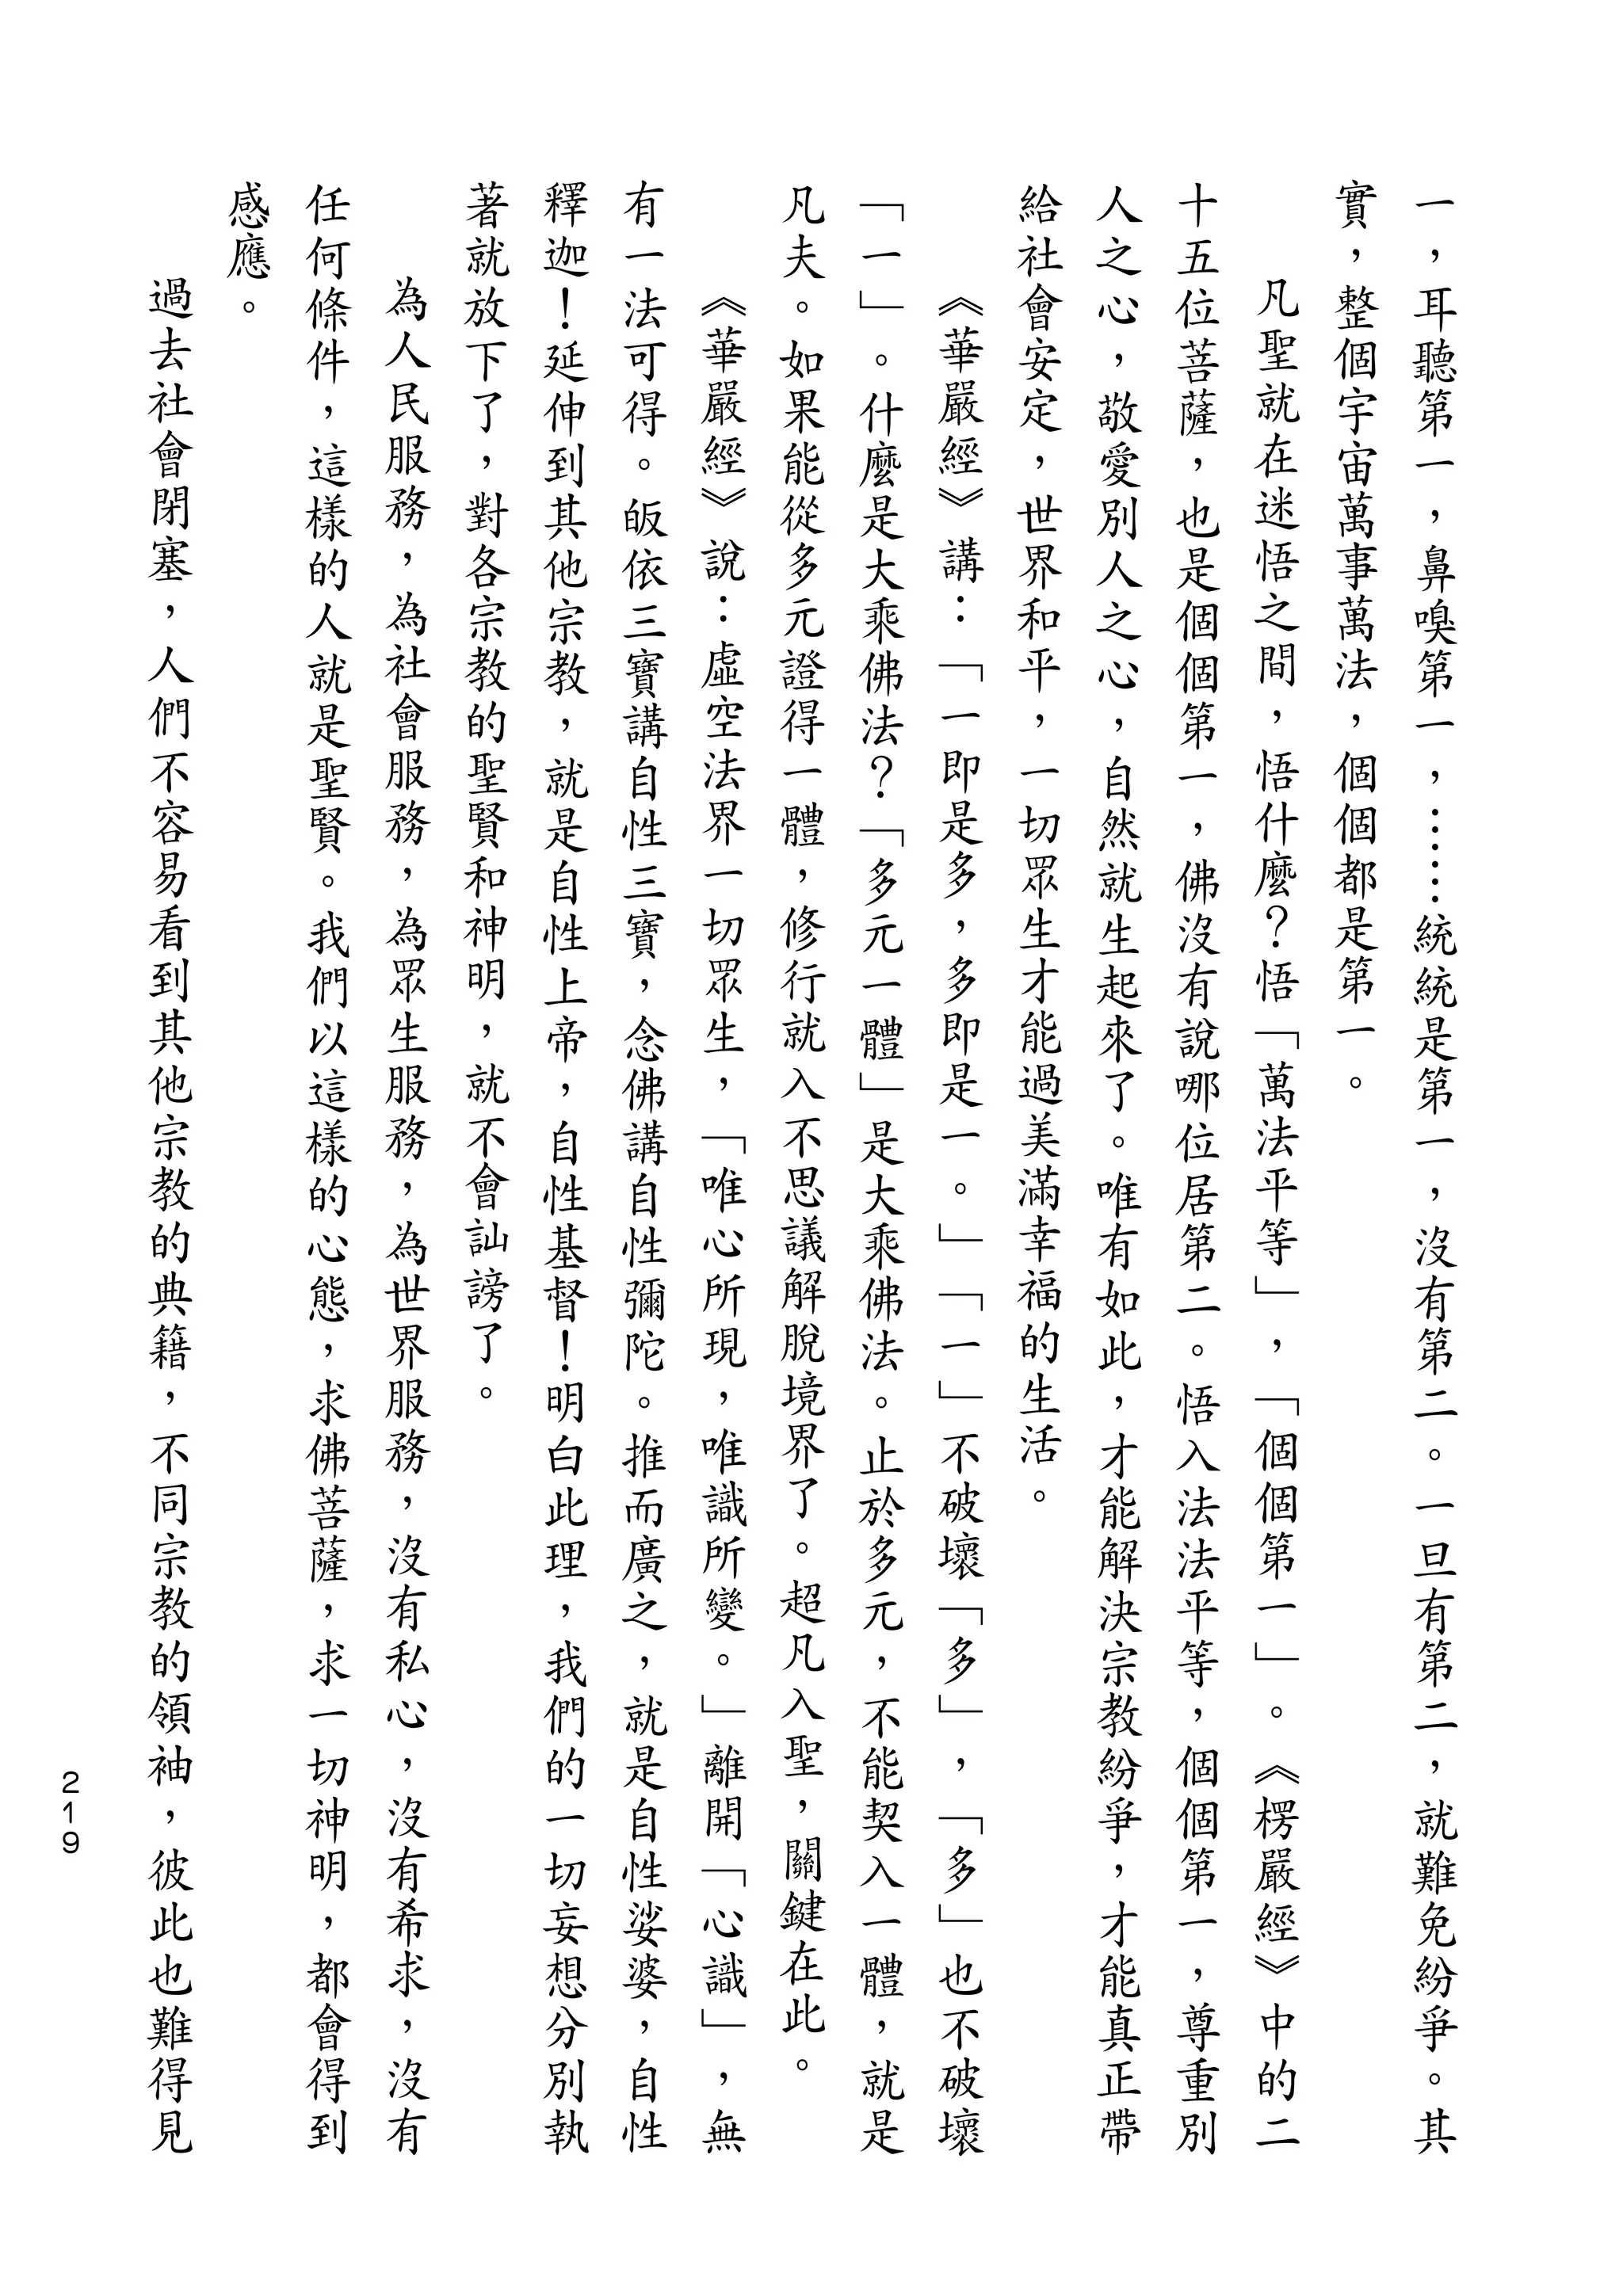 一，耳聽第一，鼻嗅第一，……統統是第一，沒有第二。一旦有第二，就難免紛爭。其
實，整個宇宙萬事萬法，個個都是第一。
凡聖就在迷悟之間，悟什麼？悟「萬法平等」，「個個第一」。《楞嚴經》中的二
十五位菩薩，也是個個第一，佛沒有說哪位居第二。悟入法法平等，個個第一，尊重別
人之心，敬愛別人之心，自然就生起來了。唯有如此，才能解決宗教紛爭，才能真正帶
給社會安定，世界和平，一切眾生才能過美滿幸福的生活。
《華嚴經》講：「一即是多，多即是一。」「一」不破壞「多」，「多」也不破壞
「一」。什麼是大乘佛法？「多元一體」是大乘佛法。止於多元，不能契入一體，就是
凡夫。如果能從多元證得一體，修行就入不思議解脫境界了。超凡入聖，關鍵在此。
《華嚴經》說：虛空法界一切眾生，「唯心所現，唯識所變。」離開「心識」，無
有一法可得。皈依三寶講自性三寶，念佛講自性彌陀。推而廣之，就是自性娑婆，自性
釋迦！延伸到其他宗教，就是自性上帝，自性基督！明白此理，我們的一切妄想分別執
著就放下了，對各宗教的聖賢和神明，就不會訕謗了。
為人民服務，為社會服務，為眾生服務，為世界服務，沒有私心，沒有希求，沒有
任何條件，這樣的人就是聖賢。我們以這樣的心態，求佛菩薩，求一切神明，都會得到
感應。
過去社會閉塞，人們不容易看到其他宗教的典籍，不同宗教的領袖，彼此也難得見
219